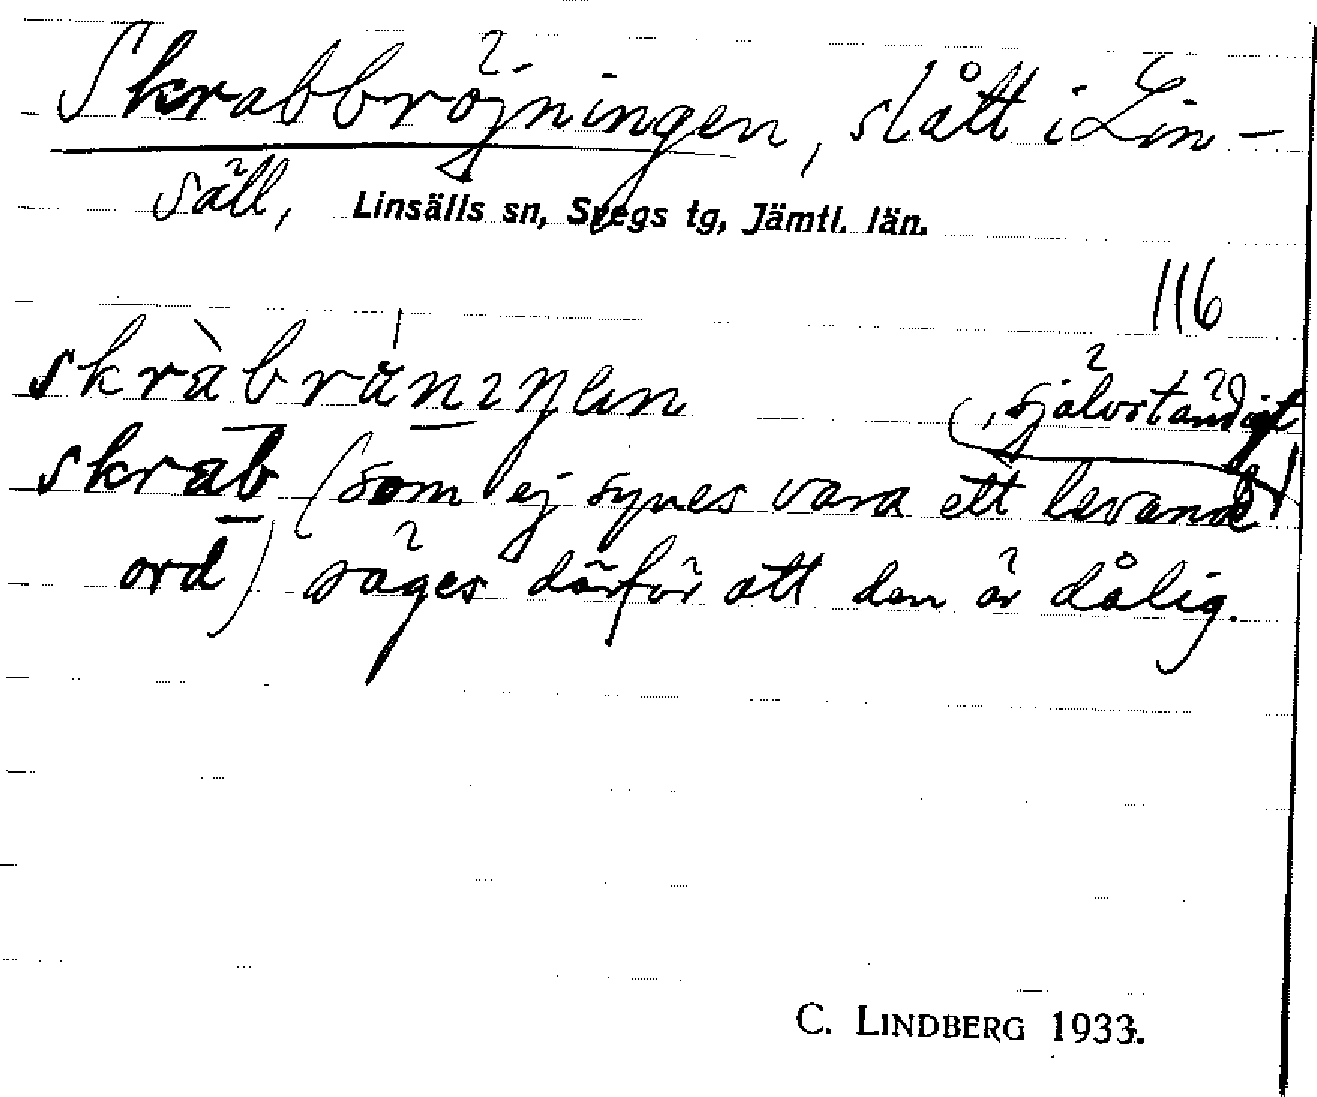 Skrabbröjningen, slått i Lin-
säll, Linsälls sn, Svegs tg, Jämtl. län.
116
självständigt
skrab (som ej synes vara ett levande
ord) säges därför att den är dålig.
C. LINDBERG 1933.